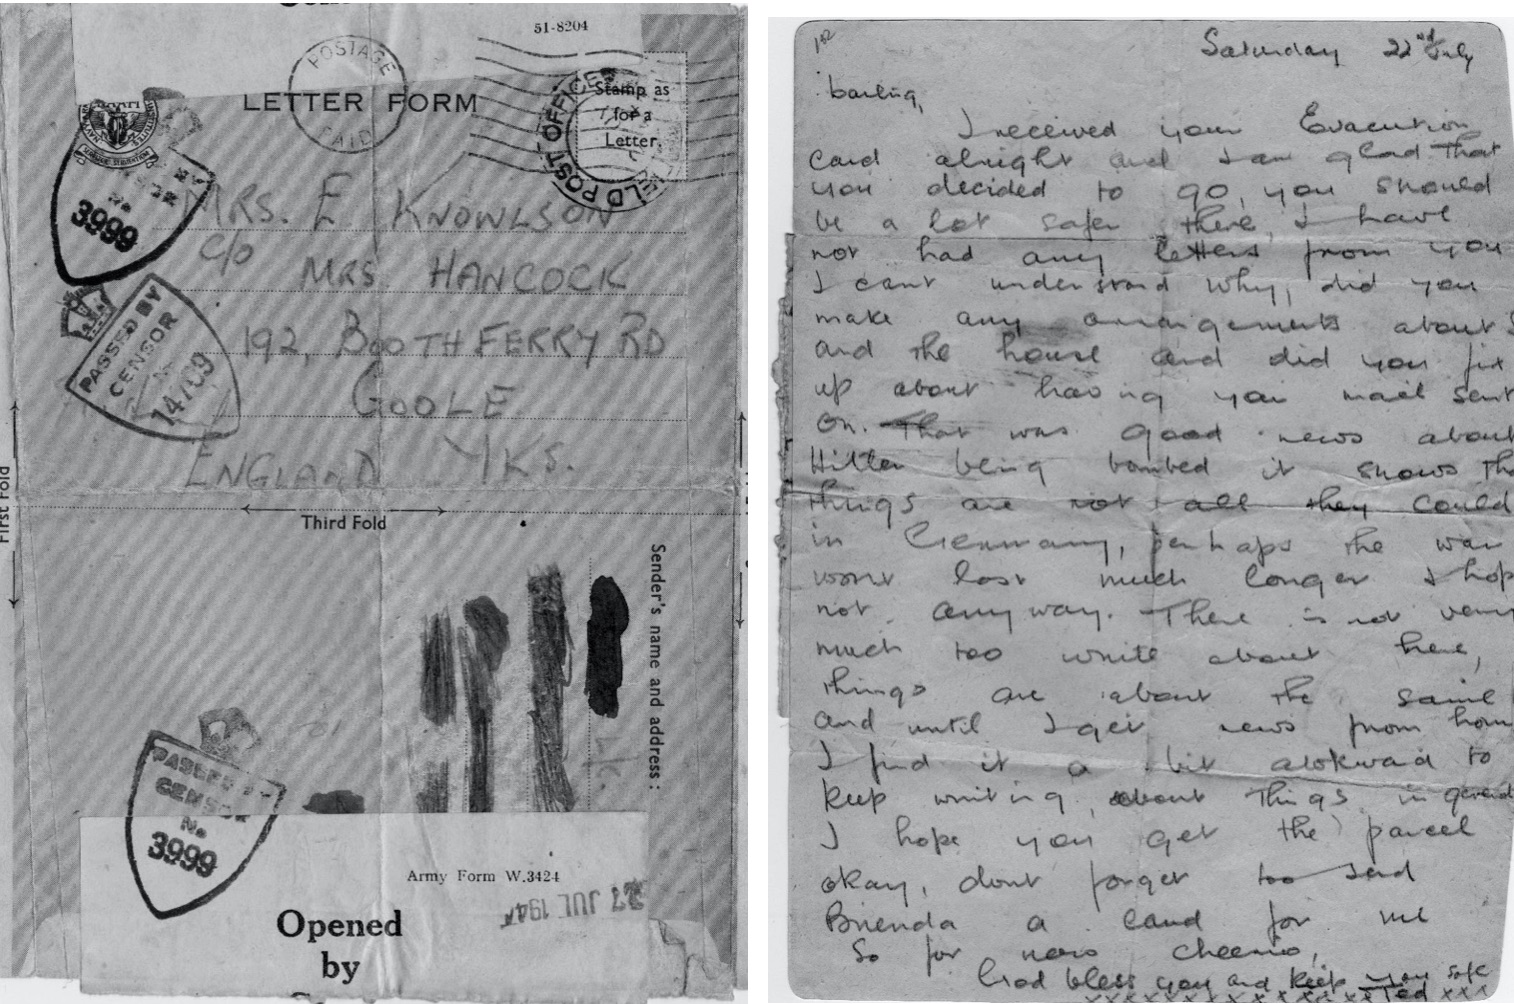 51-8204
POSTAGE
PAID
LETTER FORM
Stamp as
for a
Letter.
FIELD POST OFFICE
No.
3999
MRS. E KNOWLSON
c/o
MRS. HANCOCK
192, BOOTHFERRY RD
GOOLE
ENGLAND YKS.
PASSED BY
CENSOR
No
14709
First Fold
Third Fold
Sender's name and address:
PASSED BY
CENSOR
No.
3999
Army Form W.3424
27 JUL 194
Opened
by
1st
Saturday 22nd July
Darling,
I received your Evacution
card alright and I am glad that
you decided to go, you should
be a lot safer there, I have
not had any letters from you
I cant understand why, did you
make any arrangements about
and the house and did you fix
up about having your mail sent
on. That was good news about
Hitler being bombed it shows
things are not all they could
in Germany, perhaps the war
wont last much longer I hop
not anyway. There is not very
much too write about here,
things are about the same
and until I get news from hom
I find it a bit alokward to
keep writing about things in
I hope you get the parcel
okay, dont forget too send
Brienda a card for me
So for now cheerio,
God bless you and keep you safe
Ted xxx